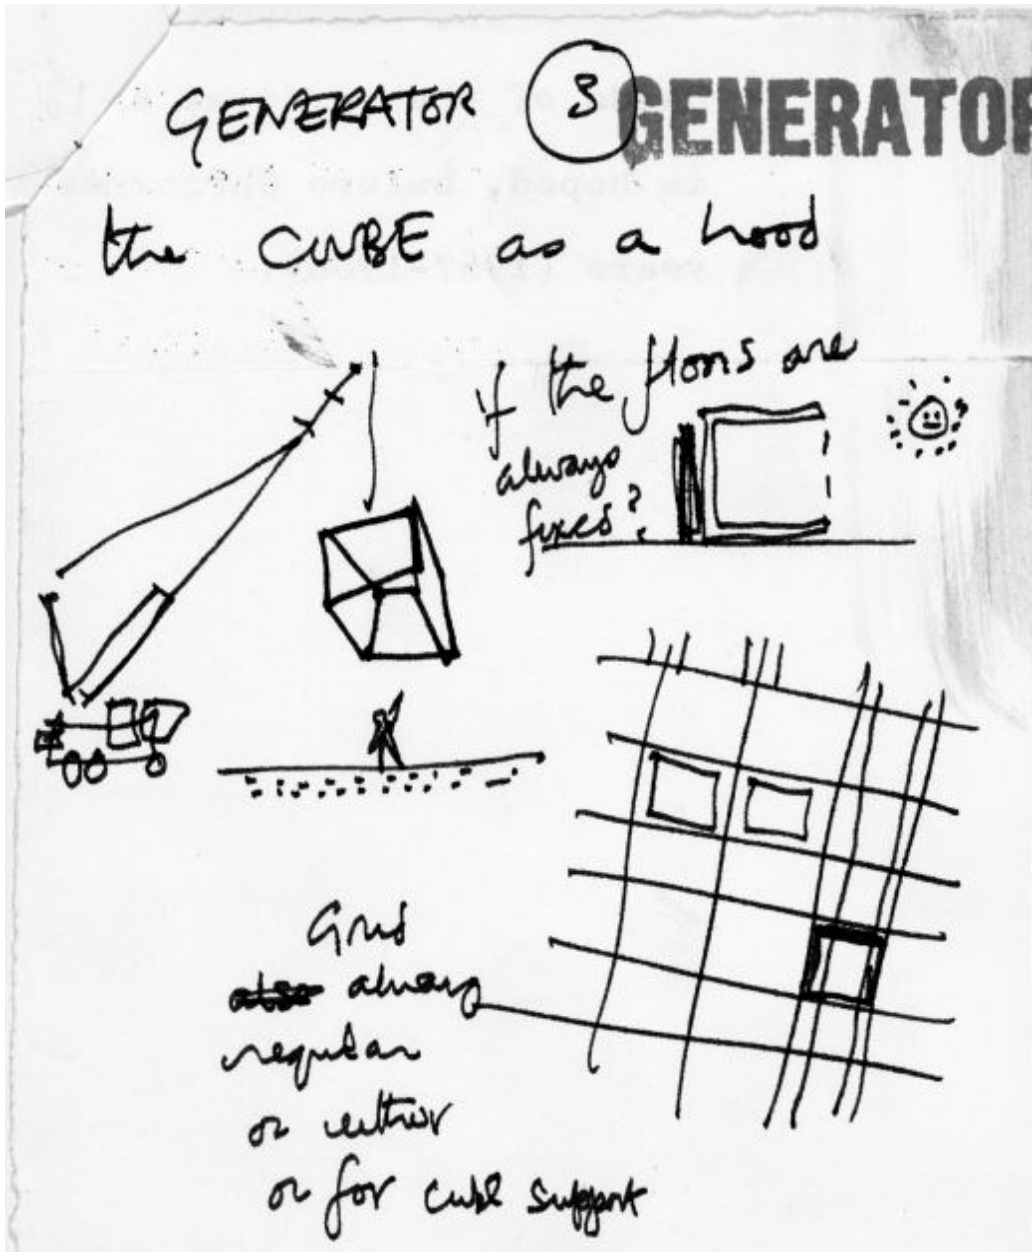 GENERATOR 3 GENERATOR
the CUBE as a hood
if the floors are
always
fixed?
Grid
always
regular
or either
or for cube support